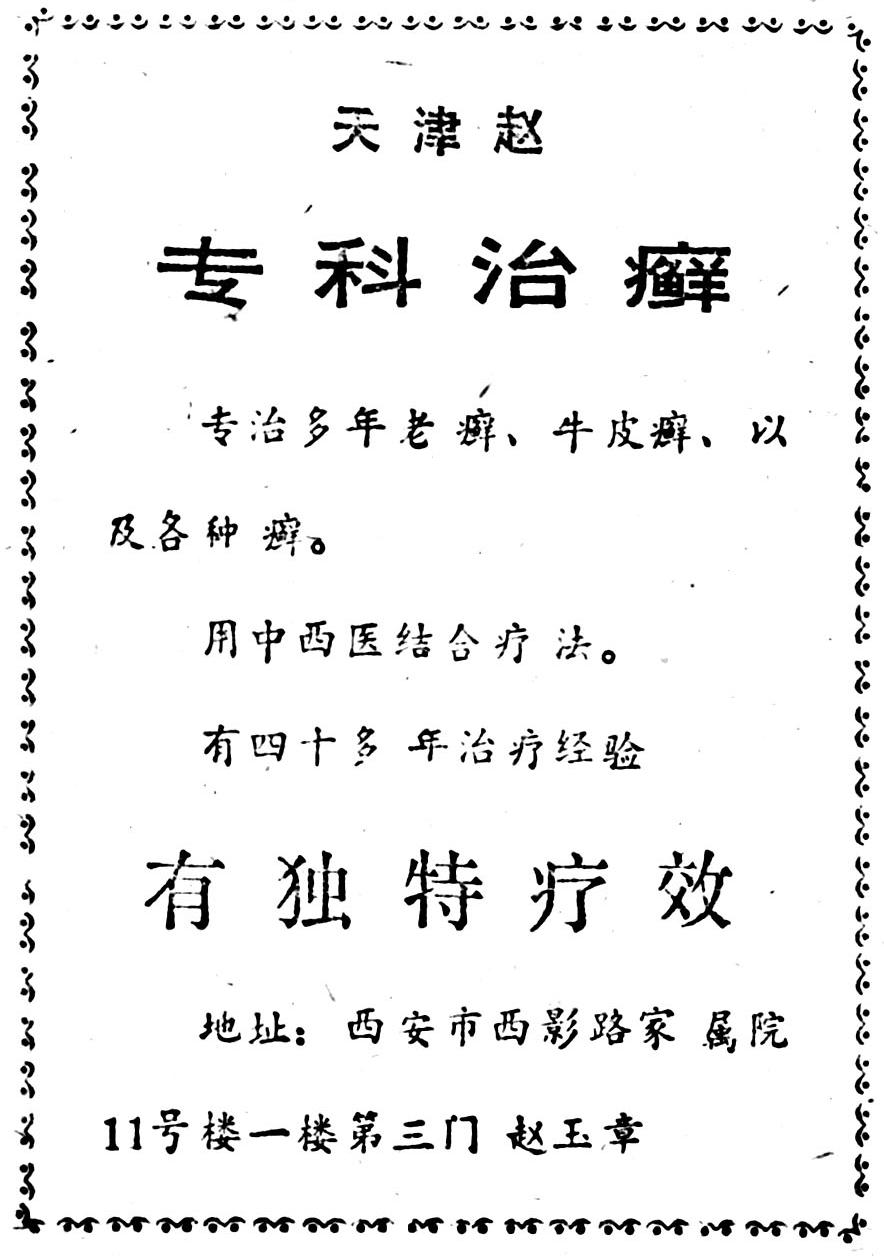 天津赵
专科治癣
专治多年老癣、牛皮癣、以
及各种癣。
用中西医结合疗法。
有四十多年治疗经验
有独特疗效
地址：西安市西影路家属院
11号楼一楼第三门 赵玉章